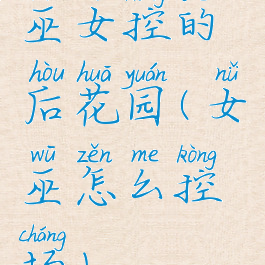 巫女控的
hòu huā yuán nǚ
后花园(女
wū zěn me kòng
巫怎么控
cháng